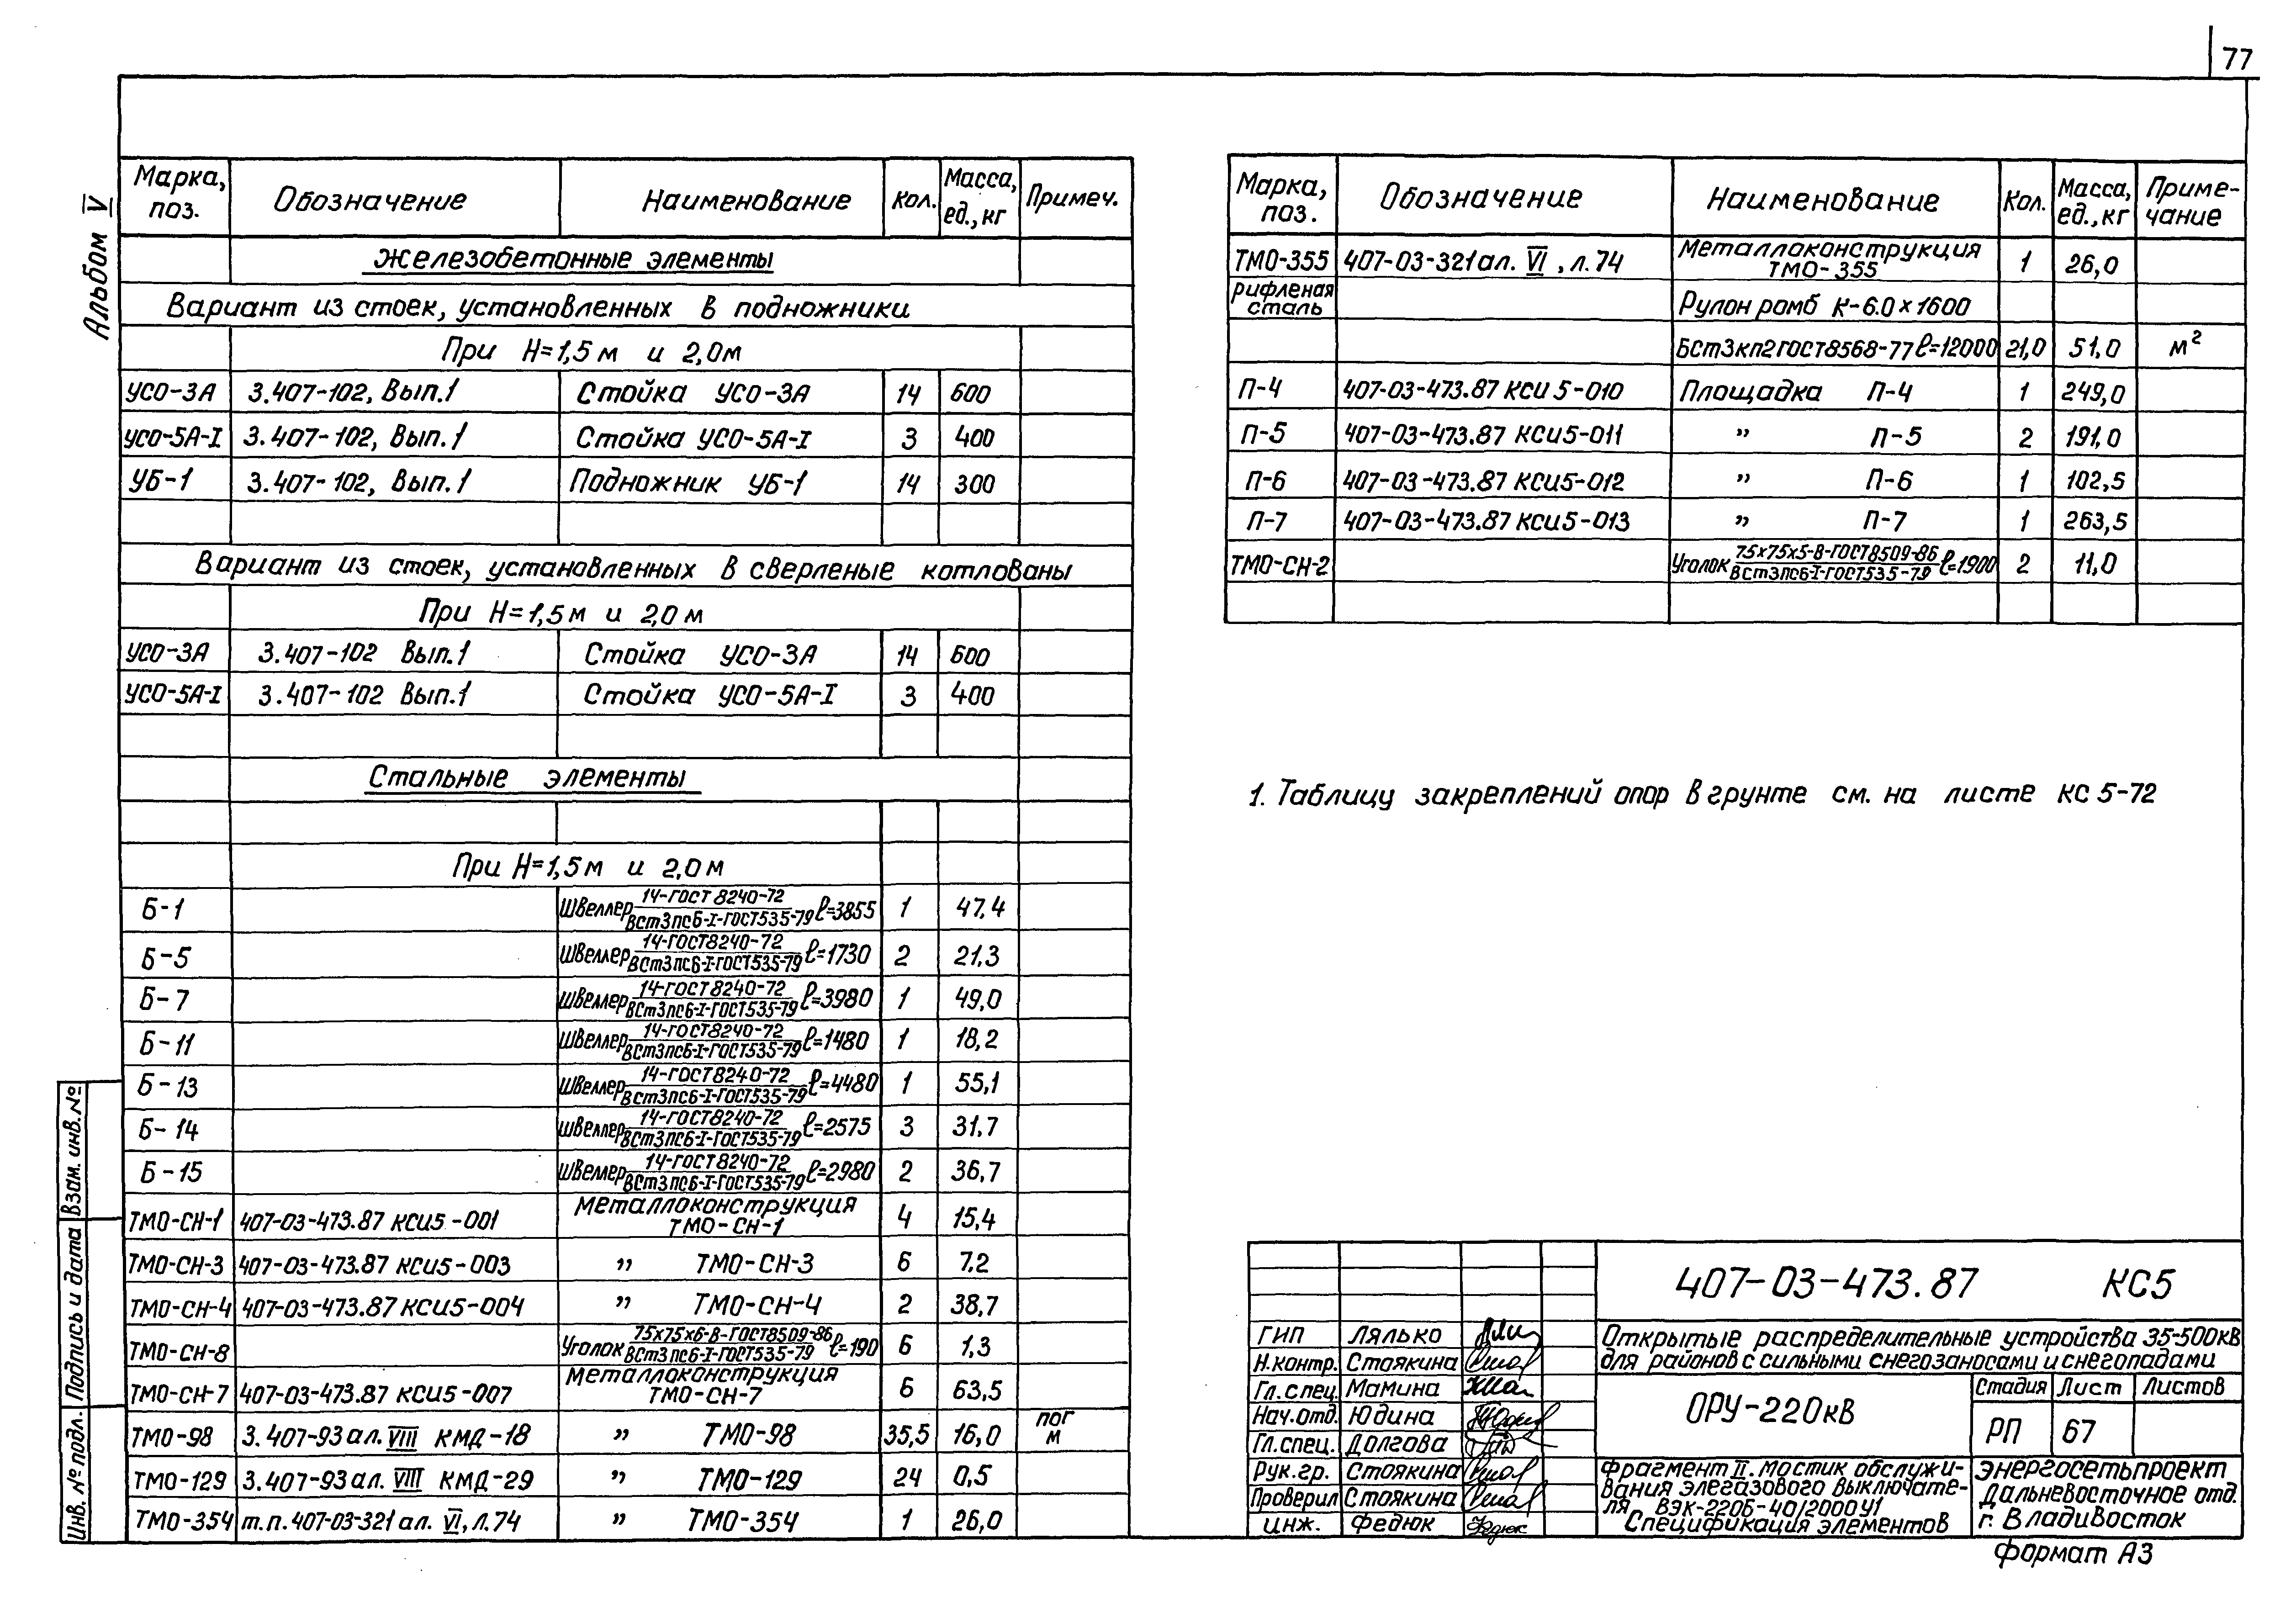 77
Альбом V
Марка, поз. Обозначение Наименование Кол. Масса, ед., кг Примеч.
Железобетонные элементы
Вариант из стоек, установленных в подножники
При Н=1,5м и 2,0м
УСО-3А 3.407-102, Вып.1 Стойка УСО-3А 14 600
УСО-5А-I 3.407-102, Вып.1 Стойка УСО-5А-I 3 400
УБ-1 3.407-102, Вып.1 Подножник УБ-1 14 300
Вариант из стоек, установленных в сверленые котлованы
При Н=1,5м и 2,0м
УСО-3А 3.407-102 Вып.1 Стойка УСО-3А 14 600
УСО-5А-I 3.407-102 Вып.1 Стойка УСО-5А-I 3 400
Стальные элементы
При Н=1,5м и 2,0м
Б-1 Швеллер 14-ГОСТ8240-72 / ВСт3пс6-I-ГОСТ535-79 ℓ=3855 1 47,4
Б-5 Швеллер 14-ГОСТ8240-72 / ВСт3пс6-I-ГОСТ535-79 ℓ=1730 2 21,3
Б-7 Швеллер 14-ГОСТ8240-72 / ВСт3пс6-I-ГОСТ535-79 ℓ=3980 1 49,0
Б-11 Швеллер 14-ГОСТ8240-72 / ВСт3пс6-I-ГОСТ535-79 ℓ=1480 1 18,2
Б-13 Швеллер 14-ГОСТ8240-72 / ВСт3пс6-I-ГОСТ535-79 ℓ=4480 1 55,1
Б-14 Швеллер 14-ГОСТ8240-72 / ВСт3пс6-I-ГОСТ535-79 ℓ=2575 3 31,7
Б-15 Швеллер 14-ГОСТ8240-72 / ВСт3пс6-I-ГОСТ535-79 ℓ=2980 2 36,7
ТМО-СН-1 407-03-473.87 КСИ5-001 Металлоконструкция ТМО-СН-1 4 15,4
ТМО-СН-3 407-03-473.87 КСИ5-003 " ТМО-СН-3 6 7,2
ТМО-СН-4 407-03-473.87 КСИ5-004 " ТМО-СН-4 2 38,7
ТМО-СН-8 Уголок 75х75х6-В-ГОСТ8509-86 / ВСт3пс6-I-ГОСТ535-79 ℓ=190 6 1,3
ТМО-СН-7 407-03-473.87 КСИ5-007 Металлоконструкция ТМО-СН-7 6 63,5
ТМО-98 3.407-93 ал. VIII КМД-18 " ТМО-98 35,5 16,0 пог м
ТМО-129 3.407-93 ал. VIII КМД-29 " ТМО-129 24 0,5
ТМО-354 т.п. 407-03-321 ал. VI, л.74 " ТМО-354 1 26,0
Марка, поз. Обозначение Наименование Кол. Масса, ед., кг Приме-чание
ТМО-355 407-03-321 ал. VI, л.74 Металлоконструкция ТМО-355 1 26,0
рифленая сталь Рулон ромб К-6.0×1600
БСт3кп2ГОСТ8568-77 ℓ=12000 21,0 51,0 м²
П-4 407-03-473.87 КСИ 5-010 Площадка П-4 1 249,0
П-5 407-03-473.87 КСИ5-011 " П-5 2 191,0
П-6 407-03-473.87 КСИ5-012 " П-6 1 102,5
П-7 407-03-473.87 КСИ5-013 " П-7 1 263,5
ТМО-СН-2 Уголок 75х75х5-В-ГОСТ8509-86 / ВСт3пс6-I-ГОСТ535-79 ℓ=1900 2 11,0
1. Таблицу закреплений опор в грунте см. на листе КС 5-72
Взам. инв. №
Подпись и дата
Инв. № подл.
407-03-473.87 КС5
ГИП Лялько
Н.контр. Стоякина
Гл.спец. Мамина
Нач.отд. Юдина
Гл.спец. Долгова
Рук.гр. Стоякина
Проверил Стоякина
Инж. Федюк
Открытые распределительные устройства 35-500кВ
для районов с сильными снегозаносами и снегопадами
ОРУ-220кВ
Стадия Лист Листов
РП 67
Фрагмент II. Мостик обслужи-
вания элегазового выключате-
ля ВЭК-220Б-40/2000У1
Спецификация элементов
Энергосетьпроект
Дальневосточное отд.
г. Владивосток
Формат А3